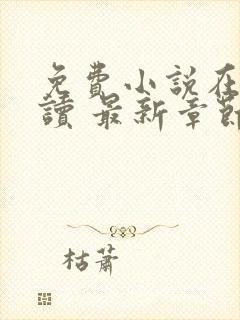 免費小說在
讀 最新章節
枯蕭